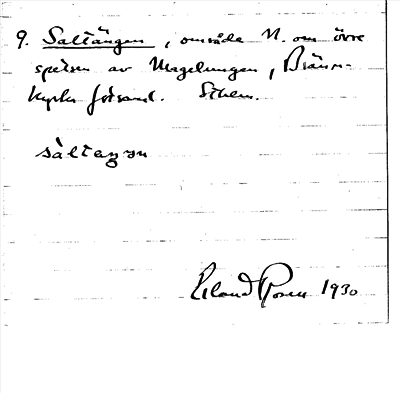 9. Saltängen, område N. om övre
spetsen av Magelungen, Bränn-
kyrka församl. Sthlm.
sàltaŋən
Erland Rosen 1930